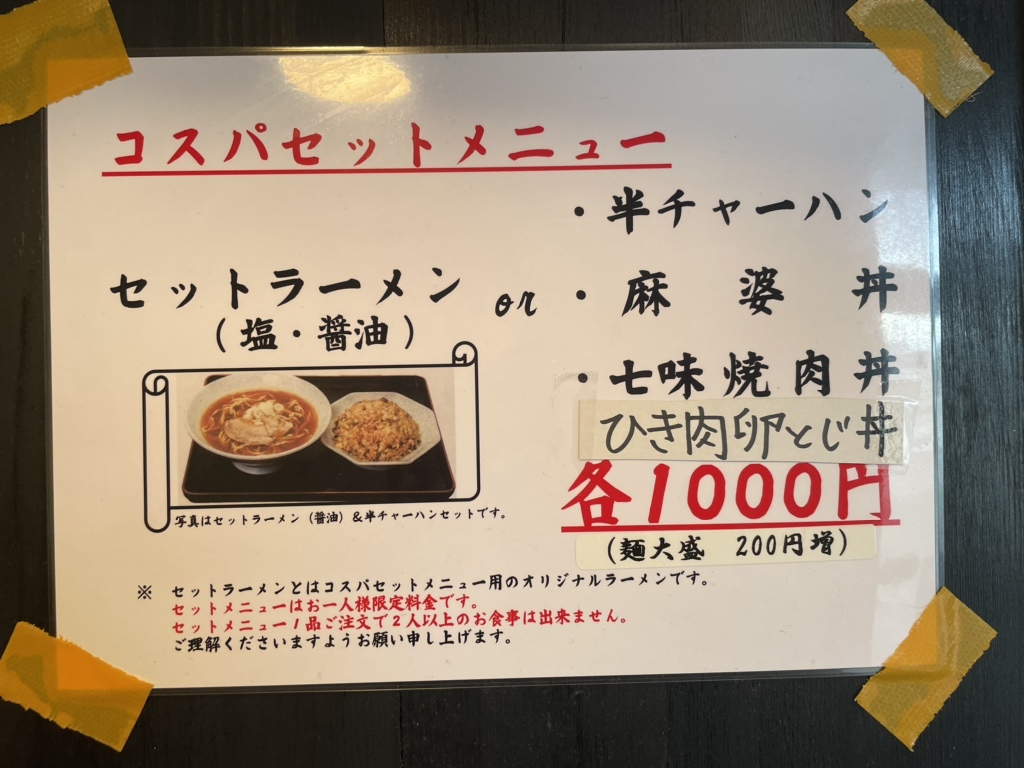 コスパセットメニュー
・半チャーハン
セットラーメン or ・麻婆丼
（塩・醤油）
・七味焼肉丼
ひき肉卵とじ丼
各1000円
（麺大盛　200円増）
写真はセットラーメン（醤油）＆半チャーハンセットです。
※　セットラーメンとはコスパセットメニュー用のオリジナルラーメンです。
セットメニューはお一人様限定料金です。
セットメニュー1品ご注文で2人以上のお食事は出来ません。
ご理解くださいますようお願い申し上げます。